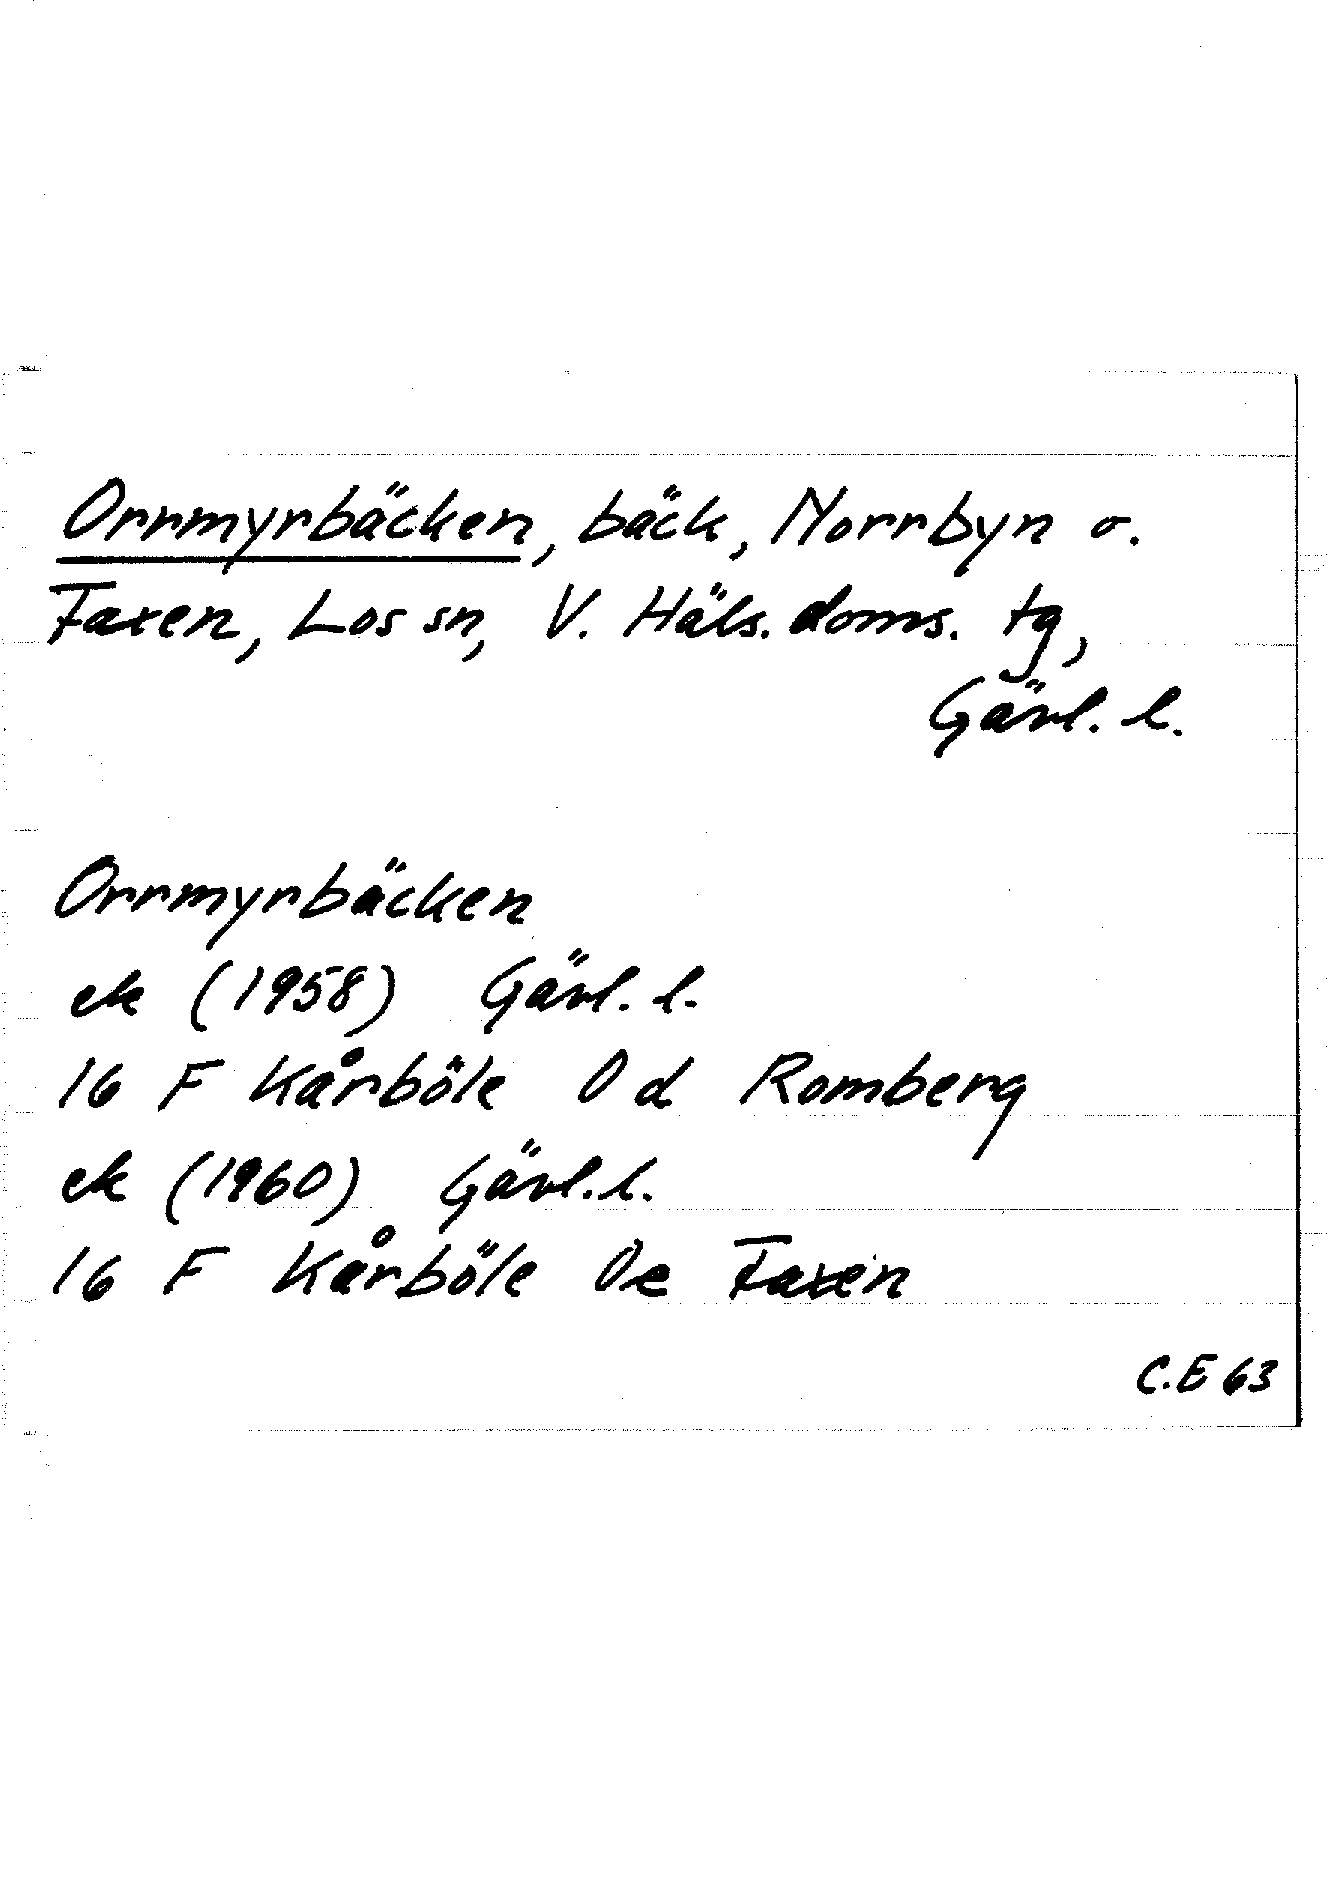 Orrmyrbäcken, bäck, Norrbyn o.
Faxen, Los sn, V. Häls. doms. tg,
Gävl. l.
Orrmyrbäcken
ek (1958) Gävl. l.
16 F Kårböle 0 d Romberg
ek (1960) Gävl. l.
16 F Kårböle 0e Faxen
C.E 63